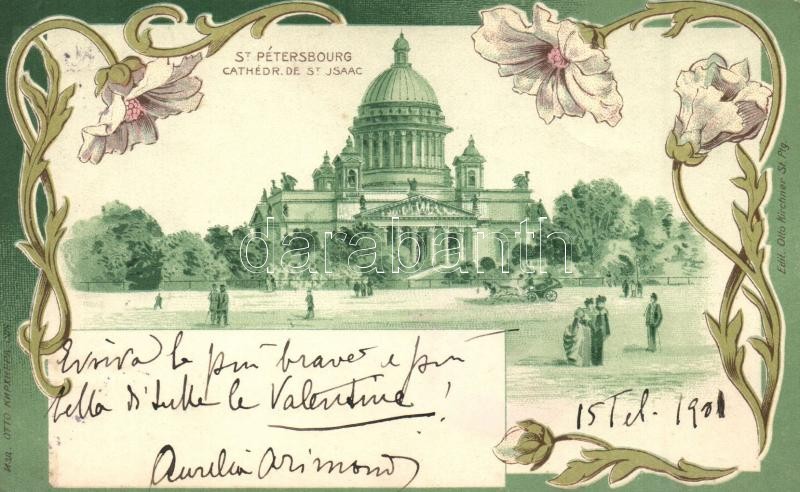 ST PÉTERSBOURG
CATHÉDR. DE ST JSAAC
darabanth
Evviva la più brava e più
bella di tutte le Valentine!
Aurelia Arimondi
15 Feb. 1901
Изд. ОТТО КИРХНЕРА. СПБ.
Edit. Otto Kirchner St. Ptg.